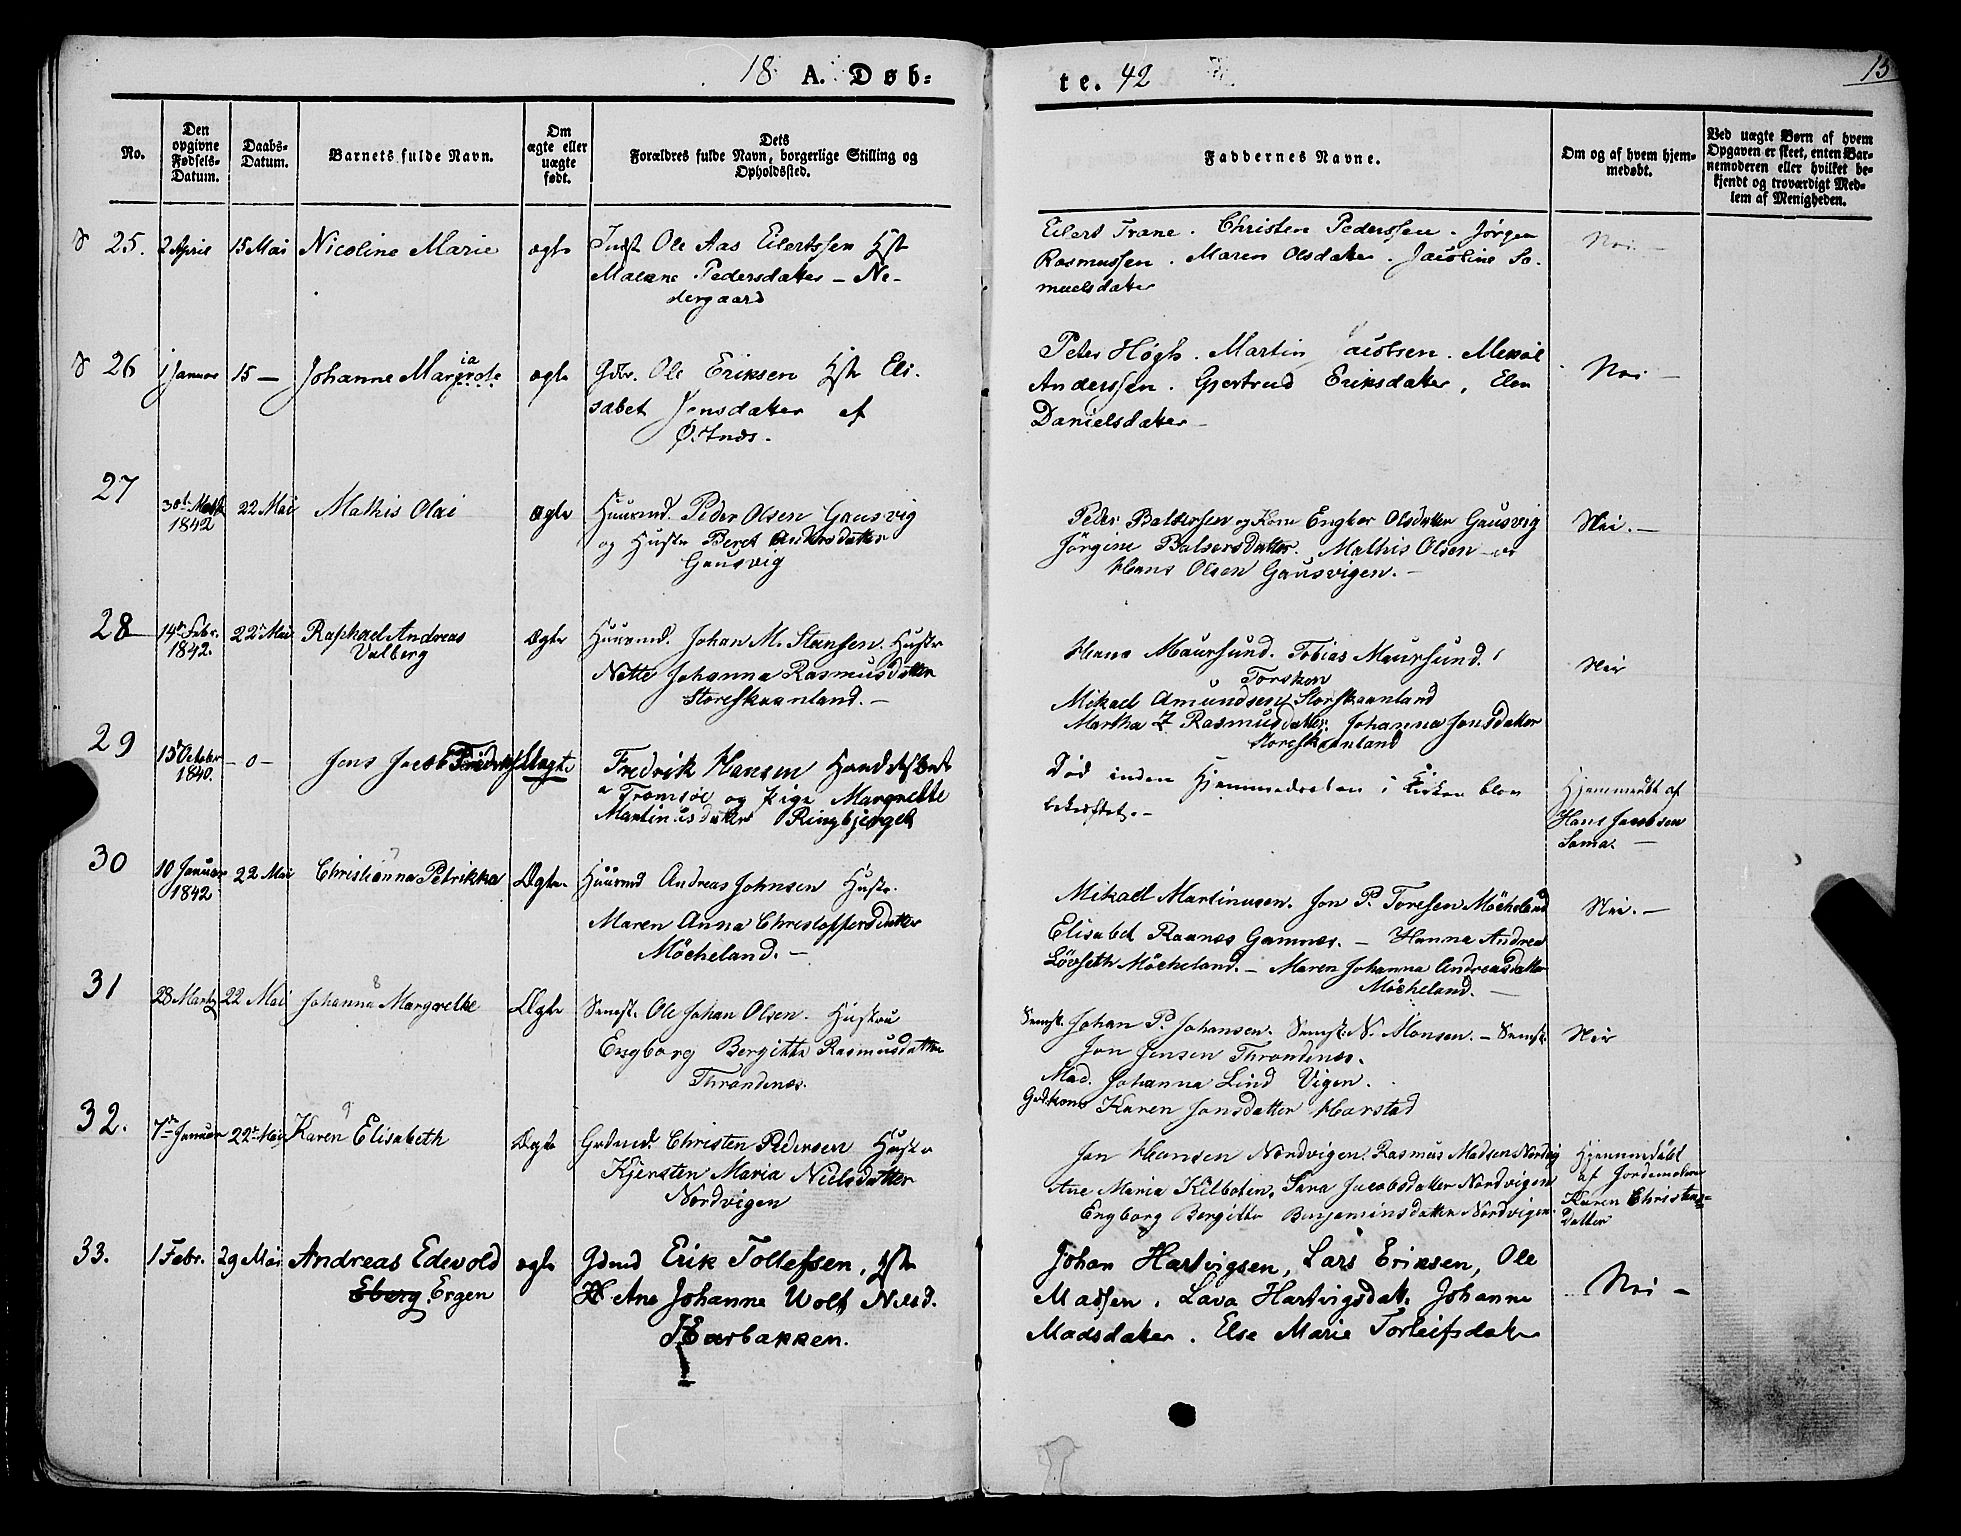 18 A. Døb-
te. 42
13
No.
Den opgivne Fødsels-Datum.
Daabs-Datum.
Barnets fulde Navn.
Om ægte eller uægte født.
Dets Forældres fulde Navn, borgerlige Stilling og Opholdssted.
Faddernes Navne.
Om og af hvem hjemmedøbt.
Ved uægte Børn af hvem Opgaven er skeet, enten Barnemoderen eller hvilket bekjendt og troværdigt Medlem af Menigheden.
25. 2 April 15 Mai Nicoline Marie ægte
Indst Ole Aas Eilertssen Hst
Malene Pedersdatter – Ne-
dergaard
Eilert Trane . Christen Pederssen . Jørgen
Rasmussen . Maren Olsdatter . Jacobine Sa-
muelsdatter
Nei –
26 1 Januar 15 – Johanne Margrete ia ægte
Gdbr. Ole Eriksen Hst Eli-
sabet Jensdatter af
Østnes.
Peter Høgh . Martin Jacobsen .
Anderssen . Gjertrud Eriksdatter , Elen
Danielsdatter –
Nei –
27 30te Marts 1842 22 Mai Mathis Olai Ægte
Huusmd. Peder Olsen Gausvig
og Hustr Beret Andersdatter
Gausvig
Peder Baltzersen og Kone Engber Olsdatter Gausvig
Jørgine Balsersdatter. Mathis Olsen – og
Hans Olsen Gausvigen. –
Nei. –
28 14de Febr. 1842. 22 Mai Raphael Andreas
Valberg
Ægte
Huusmd. Johan M. Stensen. Hustr
Nette Johanna Rasmusdatter
Storeskaanland. –
Hans Maursund. Tobias Maursund.
Torsken
Mikael Amundsen Storskaanland
Martha Z Rasmusdatter. Johanna Jonsdatter
Storeskaanland
Nei
29 15 October 1840. – o – Jens Jacob Uægte
Fredrik Hansen
Tromsøe og Pige Margrethe
Martinusdatter Ringbjerget
Død inden Hjemmedaaben i Kirken blev
bekræftet. –
Hjemmedøbt af
Hans Jacobsen
Sama. –
30 10 Januar 1842 22 Mai Christianna Petrikka Ægte.
7
Huusmd Andreas Johnsen Hustr.
Maren Anna Christoffersdatter
Möcheland. –
Mikael Martinusen. Jon P. Toresen Möcheland
Elisabet Raanes Gamnes. – Hanna Andrea
Lövseth Möcheland. – Maren Johanna Andreasdatter
Möcheland. –
Nei. –
31 28 Martz 22 Mai Johanna Margrethe Ægte
8
Semst. Ole Johan Olsen. Hustru
Engborg Bergitte Rasmusdatter
Throndenes.
Semst. Johan P. Johansen. Semst. N. Monsen. – Semst.
Jon Jensen Throndenes.
Mad. Johanna Lind Vigen.
Gdkone Karen Jonsdatter Harstad
Nei
32. 7de Januar 22de Mai Karen Elisabeth Ægte
9
Grdmd. Christen Pedersen Hustr
Kjersten Maria Nielsdatter
Nordvigen
Jon Hansen Nordvigen. Rasmus Madsen Nordvig
Ane Maria Kilboten, Sara Jacobsdatter Nordvigen
Engborg Bergitte Benjaminsdatter Nordvigen.
Hjemmedøbt
af Jordemoder
Karen Christens-
Datter
33. 1 Febr. 29 Mai Andreas Edevold
Eberg. Ergen
ægte
Gdmd Erik Tollefsen , Hst
Ane Johanne Wolf Nilsd.
Harbakken.
Johan Hartvigsen, Lars Eriksen, Ole
Madsen . Lava Hartvigsdat. Johanne
Madsdatter . Else Marie Torleifsdatter
Nei –